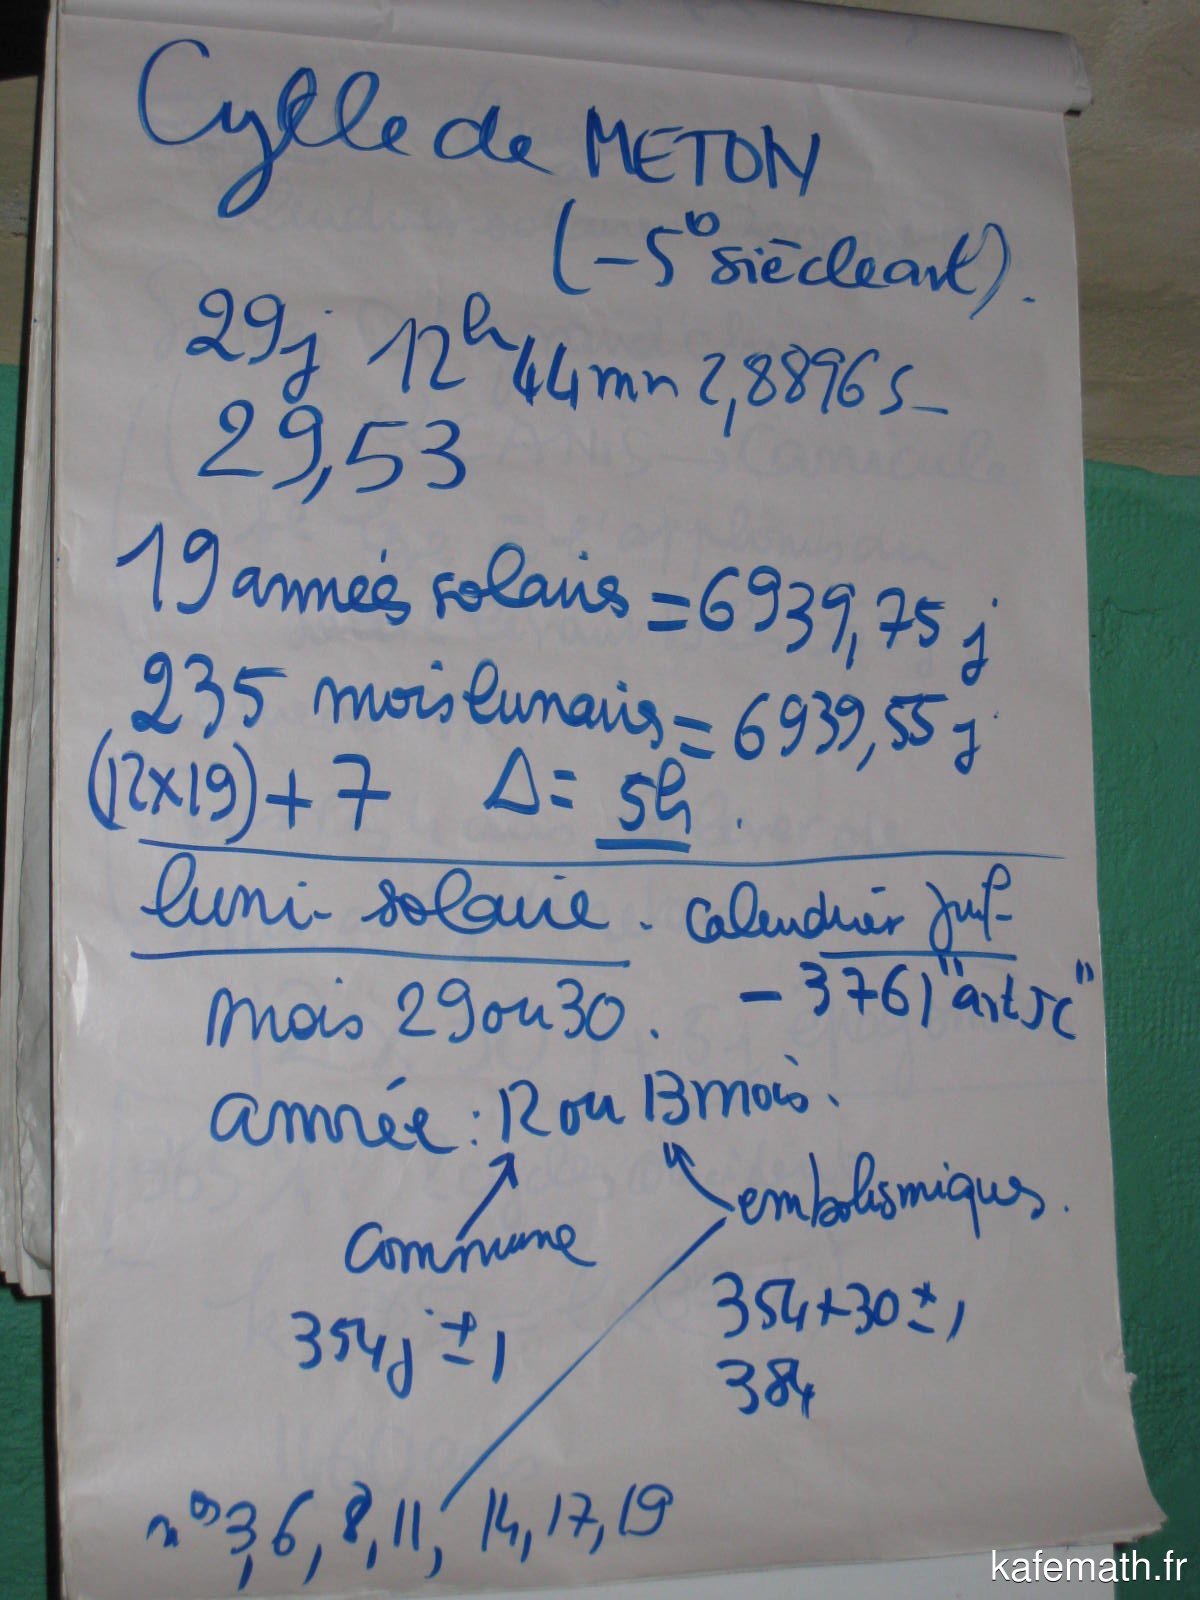 Cycle de METON
(-5e siècle avt).
29j 12h 44mn 2,8896s
29,53
19 années solaires = 6939,75 j
235 mois lunaires = 6939,55 j
(12x19) + 7 Δ = 5h.
luni-solaire. calendrier juif
mois 29 ou 30. - 3761 "avt JC"
année : 12 ou 13 mois.
commune embolismiques.
354j ± 1 354+30 ± 1
384
nos 3, 6, 8, 11, 14, 17, 19
kafemath.fr